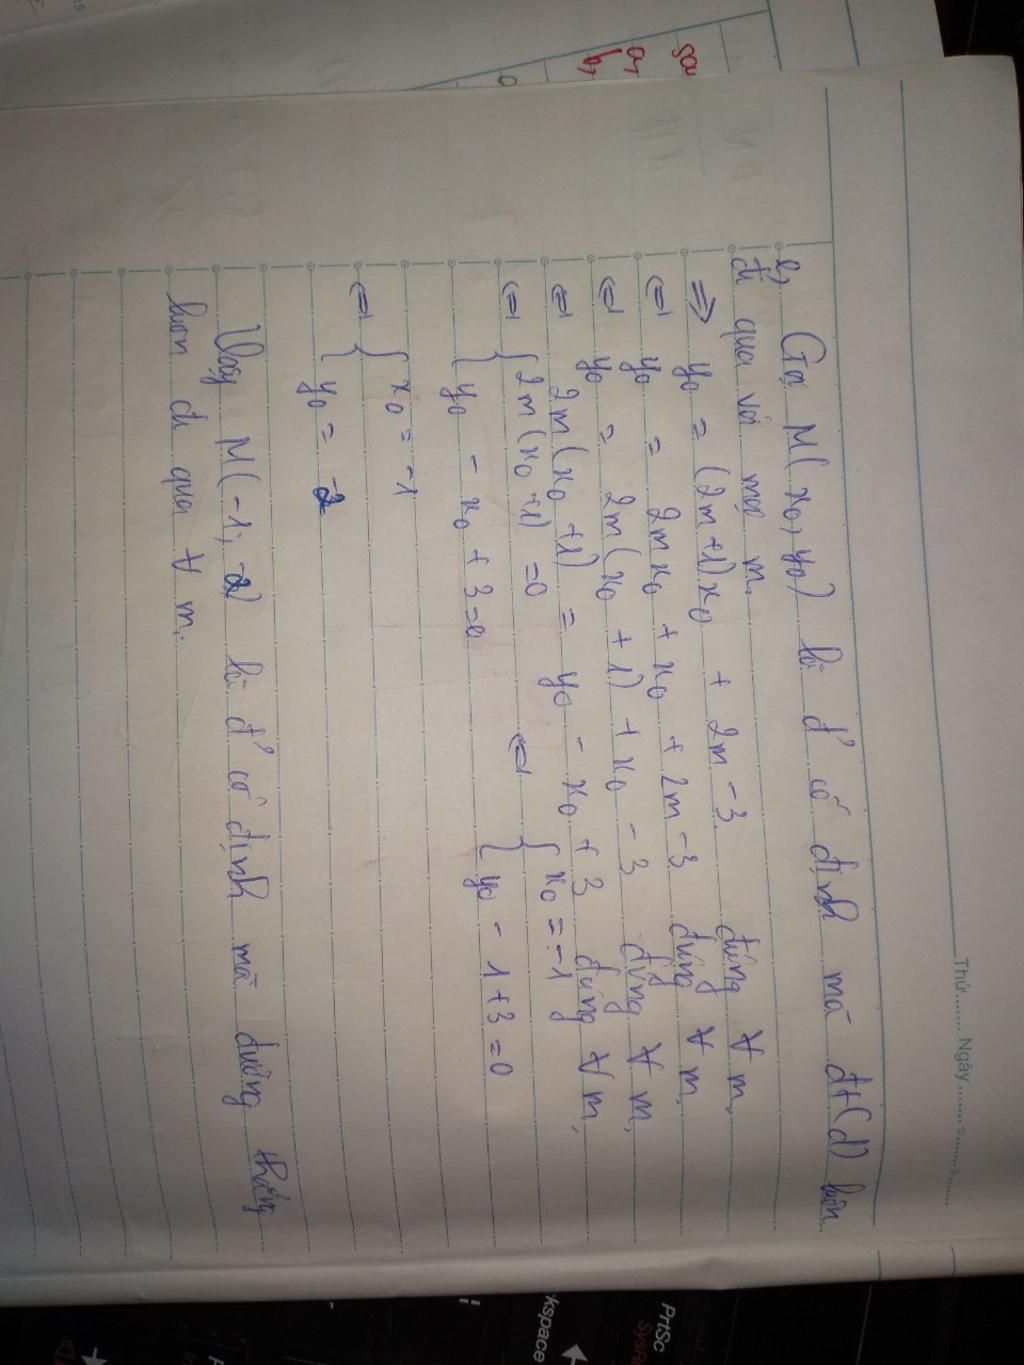 Thứ........ Ngày........
b, Gọi M(x₀, y₀) là đ' cố định mà đt(d) luôn
đi qua với mọi m.
=> y₀ = (2m+1)x₀ + 2m - 3 đúng ∀ m,
<=> y₀ = 2mx₀ + x₀ + 2m - 3 đúng ∀ m,
<=> y₀ = 2m(x₀ + 1) + x₀ - 3 đúng ∀ m,
<=> 2m(x₀ + 1) = y₀ - x₀ + 3 đúng ∀ m,
<=> { 2m(x₀ + 1) = 0 <=> { x₀ = -1
y₀ - x₀ + 3 = 0 y₀ - 1 + 3 = 0
<=> { x₀ = -1
y₀ = -2
Vậy M(-1; -2) là đ' cố định mà đường thẳng
luôn đi qua ∀ m.
PrtSc
SysR
kspace